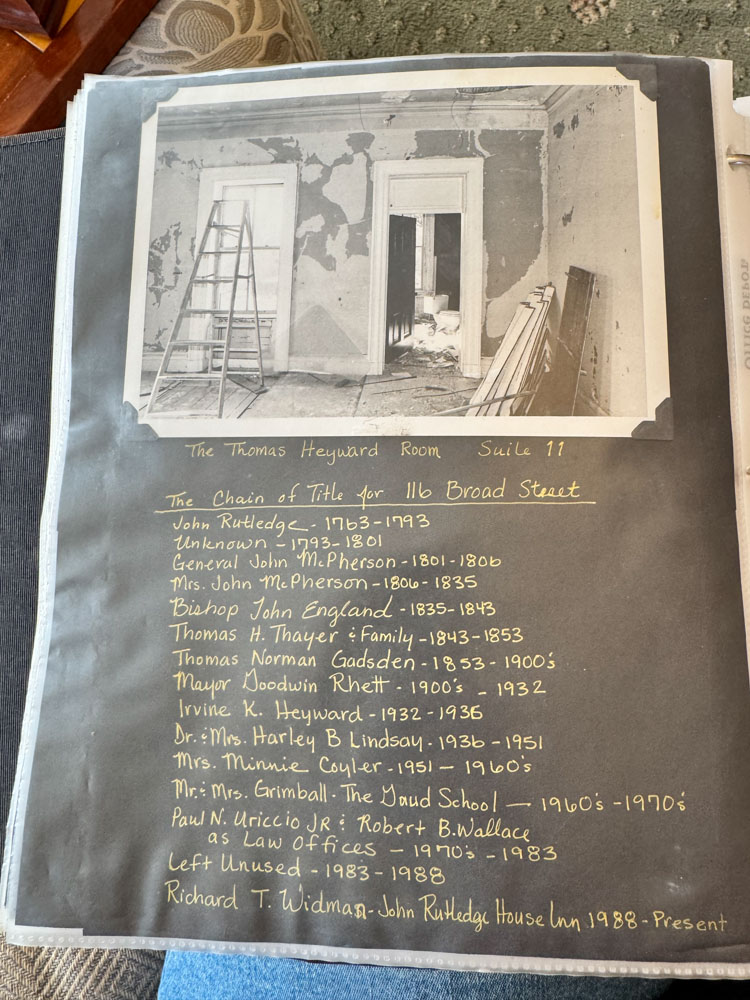 The Thomas Heyward Room Suite 11
The Chain of Title for 116 Broad Street
John Rutledge - 1763-1793
Unknown - 1793-1801
General John McPherson - 1801-1806
Mrs. John McPherson - 1806-1835
Bishop John England - 1835-1843
Thomas H. Thayer & Family - 1843-1853
Thomas Norman Gadsden - 1853-1900's
Mayor Goodwin Rhett - 1900's - 1932
Irvine K. Heyward - 1932-1936
Dr. & Mrs. Harley B Lindsay - 1936-1951
Mrs. Minnie Coyler - 1951 - 1960's
Mr. & Mrs. Grimball - The Gaud School - 1960's - 1970's
Paul N. Uriccio JR & Robert B. Wallace
as Law Offices - 1970's - 1983
Left Unused - 1983-1988
Richard T. Widman - John Rutledge House Inn 1988 - Present